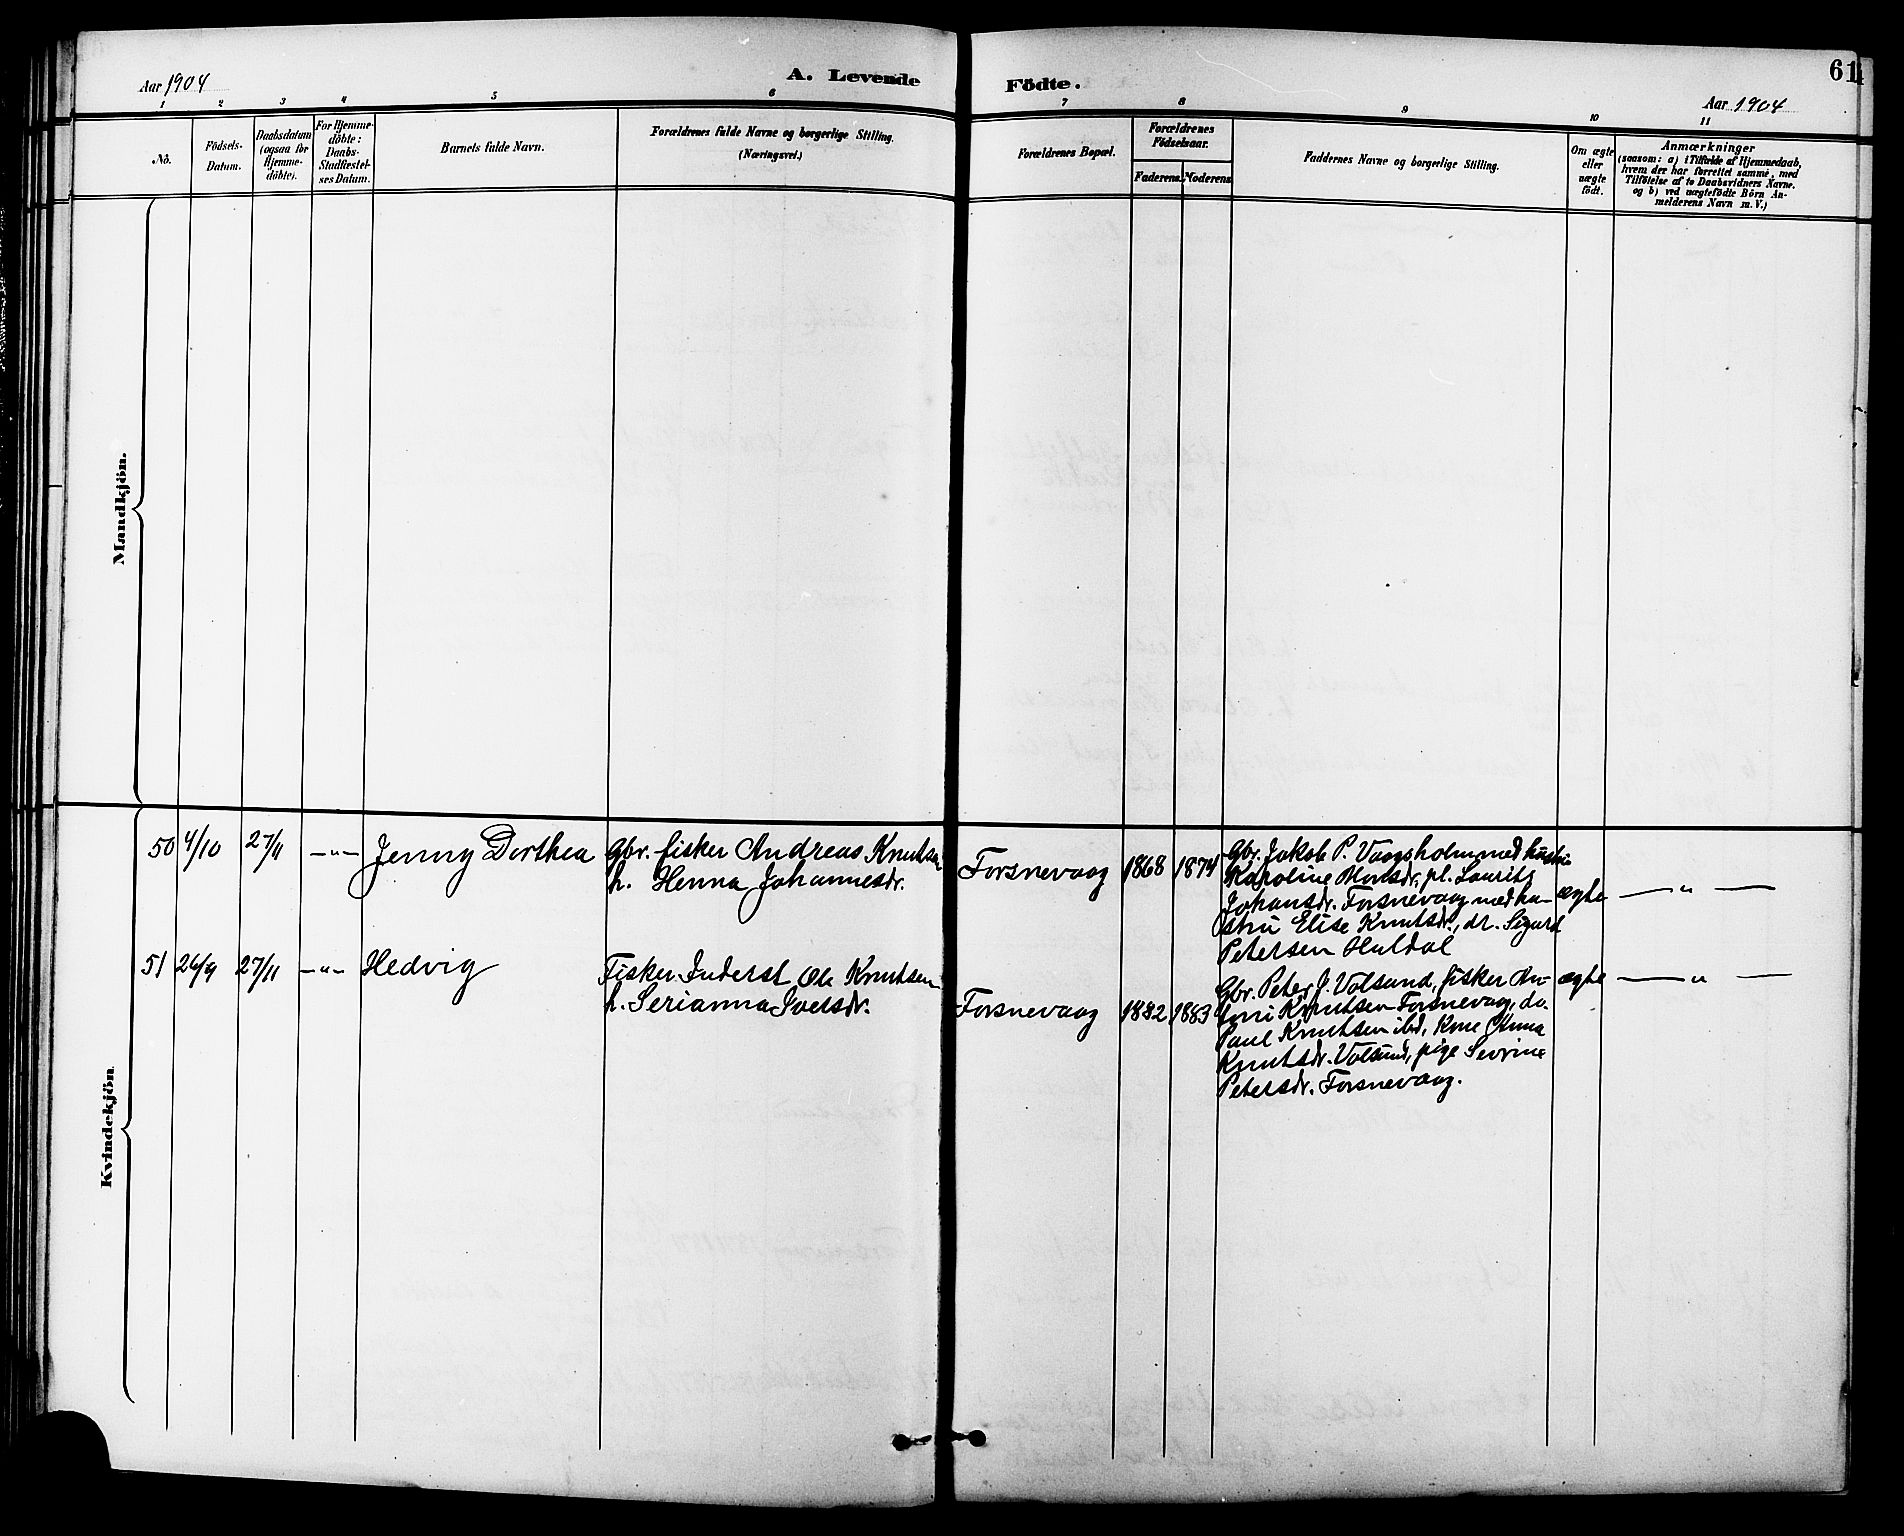 Aar 1904
A. Levende
Födte.
61
Aar 1904
1 2 3 4 5 6 7 8 9 10 11
No.
Födsels-
Datum.
Daabsdatum
(ogsaa for
Hjemme-
döbte).
For Hjemme-
döbte:
Daabs-
Stadfæstel-
ses Datum.
Barnets fulde Navn.
Forældrenes fulde Navne og borgerlige Stilling.
(Næringsvei.)
Forældrenes Bopæl.
Forældrenes
Födselsaar.
Faderens. Moderens.
Faddernes Navne og borgerlige Stilling.
Om ægte
eller
uægte
födt.
Anmærkninger
(saasom: a) i Tilfælde af Hjemmedaab,
hvem der har forrettet samme, med
Tilföielse af to Daabsvidners Navne.
og b) ved uægtefödte Börn An-
melderens Navn m. V.)
Mandkjön.
Kvindekjön.
50 4/10 27/11 -"- Jenny Dorthea
Gbr. fisker Andreas Knutsen
h. Henna Johannesdr.
Forsnevaag 1868 1874
Gbr. Jakob P. Vaagsholm med hustru
Karoline Monsdr, pl. Laurits
Johansdr. Forsnevaag med hu-
stru Elise Knutsdr., dr. Sigurd
Petersen Huldal
ægte — " —
51 26/9 27/11 -"- Hedvig
Fisker Inderst Ole Knutsen
h. Serianna Iversdr.
Forsnevaag 1882 1883
Gbr. Peter J. Volsund, fisker An-
toni Knutsen Forsnevaag, do.
Paul Knutsen ibd, Kone Anna
Knutsdr. Volsund, pige Sevrine
Petersdr. Forsnevaag.
ægte — " —